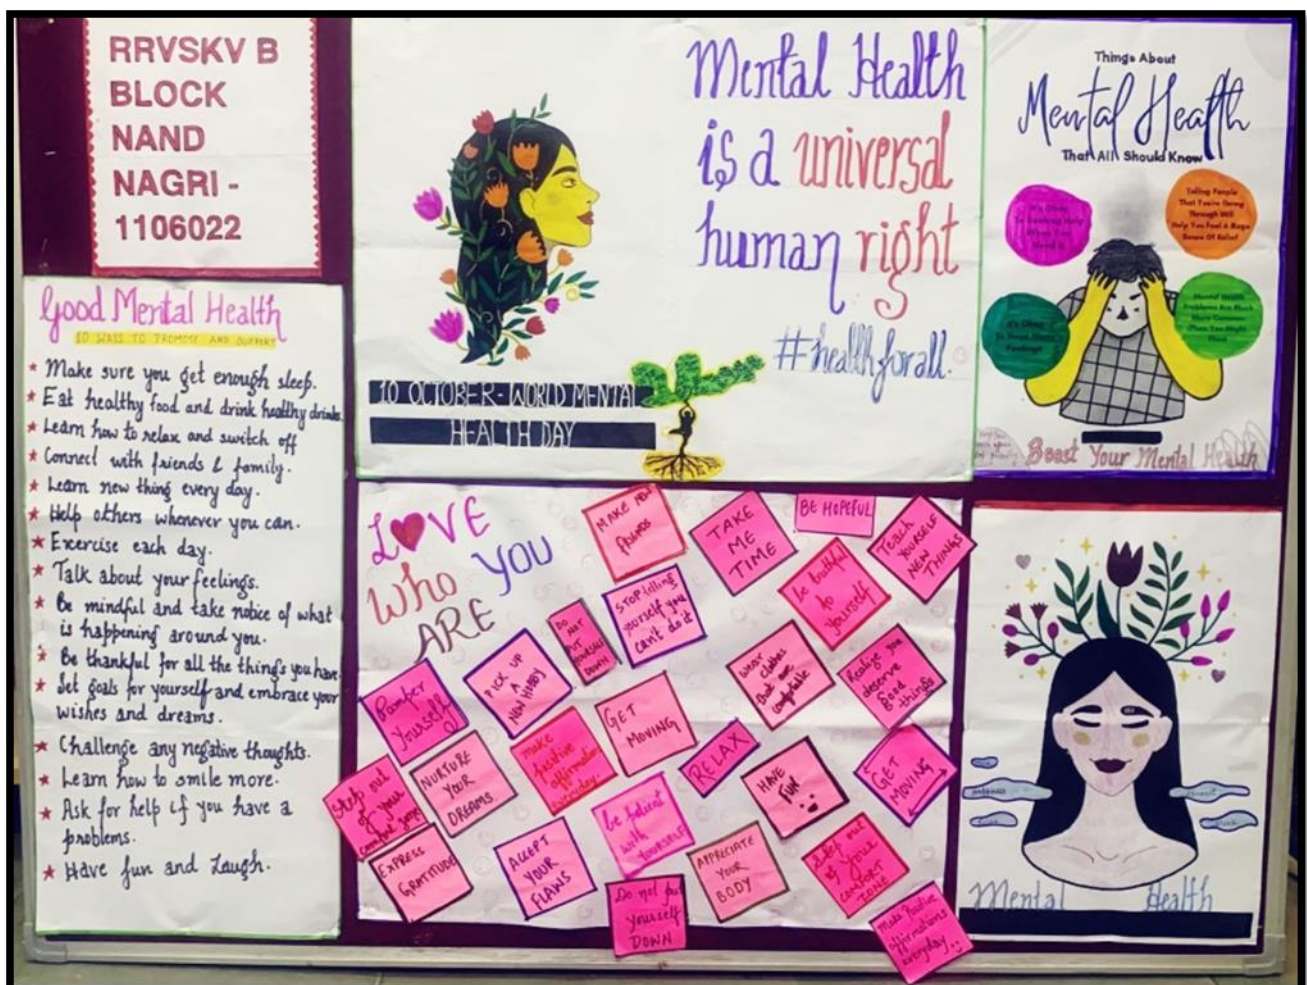 RRVSKV B
BLOCK
NAND
NAGRI -
1106022
Good Mental Health
10 WAYS TO PROMOTE AND SUPPORT
Make sure you get enough sleep.
Eat healthy food and drink healthy drinks
Learn how to relax and switch off
Connect with friends & family.
Learn new thing every day.
Help others whenever you can.
Exercise each day.
Talk about your feelings.
Be mindful and take notice of what
is happening around you.
Be thankful for all the things you have
Set goals for yourself and embrace your
wishes and dreams.
Challenge any negative thoughts.
Learn how to smile more.
Ask for help if you have a
problems.
Have fun and Laugh.
Mental Health
is a universal
human right
#healthforall.
10 OCTOBER - WORLD MENTAL
HEALTH DAY
Things About
Mental Health
That All Should Know
It's Okay
To Seeking Help
When You
Need It
Telling People
That You're Going
Through Will
Help You Feel A Huge
Sense Of Relief
It's Okay
To Have
Feelings
Mental Health
Problems Are Much
More Common
Than You Might
Think
Boost Your Mental Health
LOVE
Who YOU
ARE
MAKE NEW
FRIENDS
TAKE
ME
TIME
BE HOPEFUL
Teach
YOURSELF
NEW
THINGS
STOP telling
yourself you
can't do it
be
to
yourself
DO
NOT
PUT
YOURSELF
DOWN
PICK UP
A
NEW HOBBY
wear
clothes
that are
comfortable
Realize you
deserve
Good
things
Pamper
Yourself
GET
MOVING
make
positive
affirmation
everyday.
RELAX
NURTURE
YOUR
DREAMS.
HAVE
FUN
GET
MOVING
Step out
of your
comfort zone
be patient
with
YOURSELF
EXPRESS
GRATITUDE
ACCEPT
YOUR
FLAWS
APPRECIATE
YOUR
BODY
Step out
of your
COMFORT
ZONE
Do not put
yourself
DOWN
Make Positive
affirmations
everyday..
Mental Health